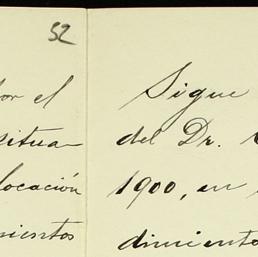 52
or el
situa-
locación
mientos
Sigue
del Dr.
1900, en
dimiento